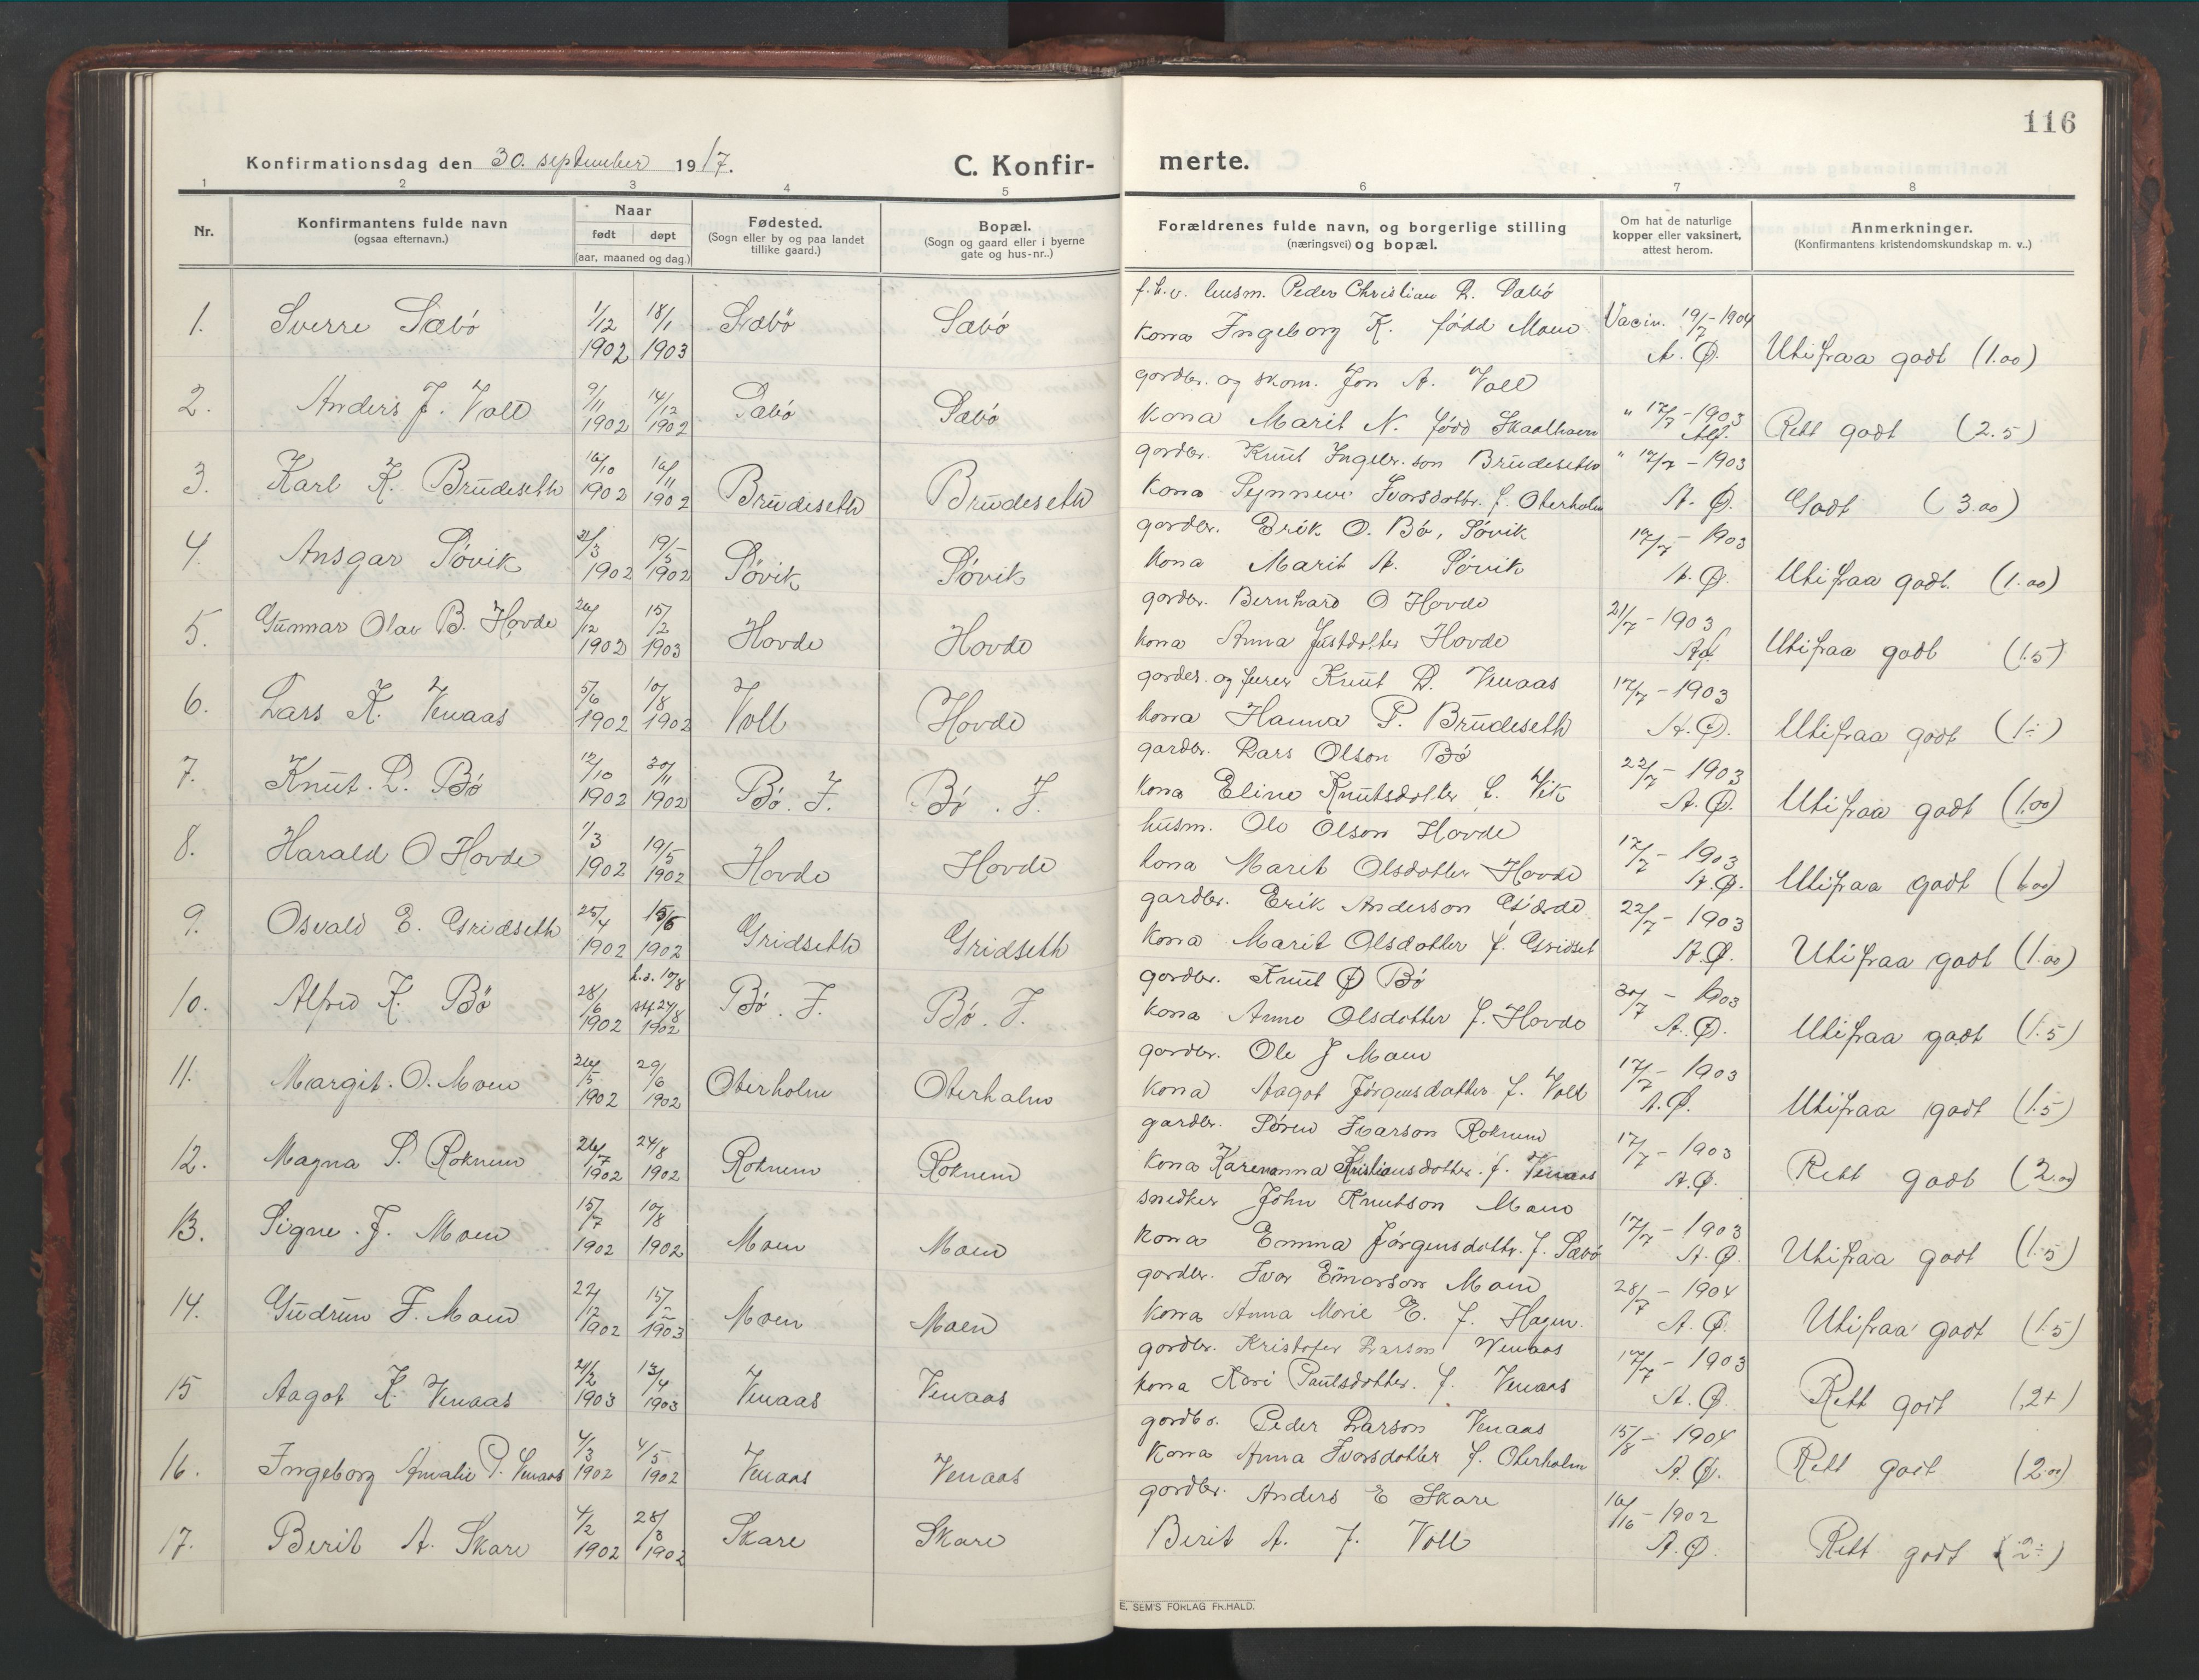 116
Konfirmationsdag den 30. september 1917.
C. Konfir-
merte.
1 2 3 4 5 6 7 8
Nr.
Konfirmantens fulde navn
(ogsaa efternavn.)
Naar
født døpt
(aar, maaned og dag.)
Fødested.
(Sogn eller by og paa landet
tillike gaard.)
Bopæl.
(Sogn og gaard eller i byerne
gate og hus-nr..)
Forældrenes fulde navn, og borgerlige stilling
(næringsvei) og bopæl.
Om hat de naturlige
kopper eller vaksinert,
attest herom.
Anmerkninger.
(Konfirmantens kristendomskundskap m. v..)
1. Sverre Sæbø 1/12 1902 18/1 1903 Sæbö Sæbø
f.h.v. husm. Peder Christian L. Sæbø
kona Ingeborg K. född Moen Vacin. 19/7-1904 A. Ø. Utifraa godt (1.00)
2. Anders J. Voll 9/11 1902 14/12 1902 Sæbø Sæbø
gordbr. og skom. Jon A. Voll
kona Marit N. född Skaalhavn " 17/7-1903 Rett godt (2.5)
3. Karl K. Brudeseth 16/10 1902 16/11 1902 Brudeseth Brudeseth
gordbr. Knut Ingebr.son Brudeseth " 17/7-1903
kona Synneve Ivorsdottr. f. Oterholm A. Ø. Godt (3.00)
4. Ansgar Søvik 31/3 1902 19/5 1902 Søvik Søvik
gordbr. Erik O. Bø, Søvik 17/7-1903
kona Marit A. Søvik A. Ø. Utifraa godt. (1.00)
5. Gunnar Olav B. Hovde 26/12 1902 15/2 1903 Hovde Hovde
gordbr. Bernhard O Hovde 21/7-1903
kona Anna Justdotter Hovde Utifraa godt (1.5)
6. Lars K. Venaas 5/6 1902 10/8 1902 Voll Hovde
gordbr. og furer Knut D. Venaas 17/7-1903
kona Hanna P. Brudeseth A. Ø. Utifraa godt (1÷)
7. Knut. L. Bø 12/10 1902 30/11 1902 Bø. J. Bø. J.
gardbr. Lars Olson Bø 22/7-1903
kona Eline Knutsdotter f. Vik A. Ø. Utifraa godt (1.00)
8. Harald O Hovde 1/3 1902 19/5 1902 Hovde Hovde
husm. Ole Olson Hovde 17/7-1903
kona Marit Olsdotter Hovde A. Ø. Utifraa godt (1.00)
9. Osvald E. Gridseth 25/4 1902 15/6 1902 Gridseth Gridseth
gardbr. Erik Anderson Gjærde 22/7-1903
kona Marit Olsdotter f. Gridset A. Ø. Utifraa godt (1.00)
10. Alfred K. Bö 28/6 1902 h.d. 10/8 24/8 1902 Bø. J. Bø. J.
gordbr. Knut Ø Bø 30/7-1903
kona Anne Olsdotter f. Hovde A. Ø. Utifraa godt (1.5)
11. Margit. O. Moen 26/5 1902 29/6 1902 Oterholm Oterholm
gordbr. Ole J Moen 17/7-1903
kona Aagot Jørgensdotter f. Voll A. Ø. Utifraa godt (1.5)
12. Magna S. Roknem 26/7 1902 24/8 1902 Roknem Roknem
gardbr. Søren Ivarson Roknem 17/7-1903
kona Karenanna Kristiansdotter. f. Venaas A. Ø. Rett godt (2.00)
13. Signe. J. Moen 15/7 1902 10/8 1902 Moen Moen
snedker John Knutson Moen 17/7-1903
kona Emma Jörgensdottr. f. Sæbø A. Ø. Utifraa godt (1.5)
14. Gudrun I. Moen 22/12 1902 15/2 1903 Moen Moen
gordbr. Ivar Einarson Moen 28/7-1904
kona Anna Marie E. f. Hagen. A. Ø. Utifraa godt (1.5)
15 Aagot K Venaas 2/2 1903 13/4 1903 Venaas Venaas
gordbr. Kristofer Larson Venaas 17/7-1903
kona Kari Paulsdotter. f. Venaas A. Ø. Rett godt (2+)
16. Ingeborg Amalie P. Venaas 4/3 1902 4/5 1902 Venaas Venaas
gordbr. Peder Larson Venaas 15/8-1904
kona Anna Ivarsdotter f. Oterholm A. Ø. Rett godt (2.00)
17. Berit A. Skare 4/2 1902 28/3 1902 Skare Skare
gordbr. Anders E Skare 16/10-1902
Berit A. f. Voll A. Ø. Rett godt (2÷)
E. SEM'S FORLAG FR.HALD.